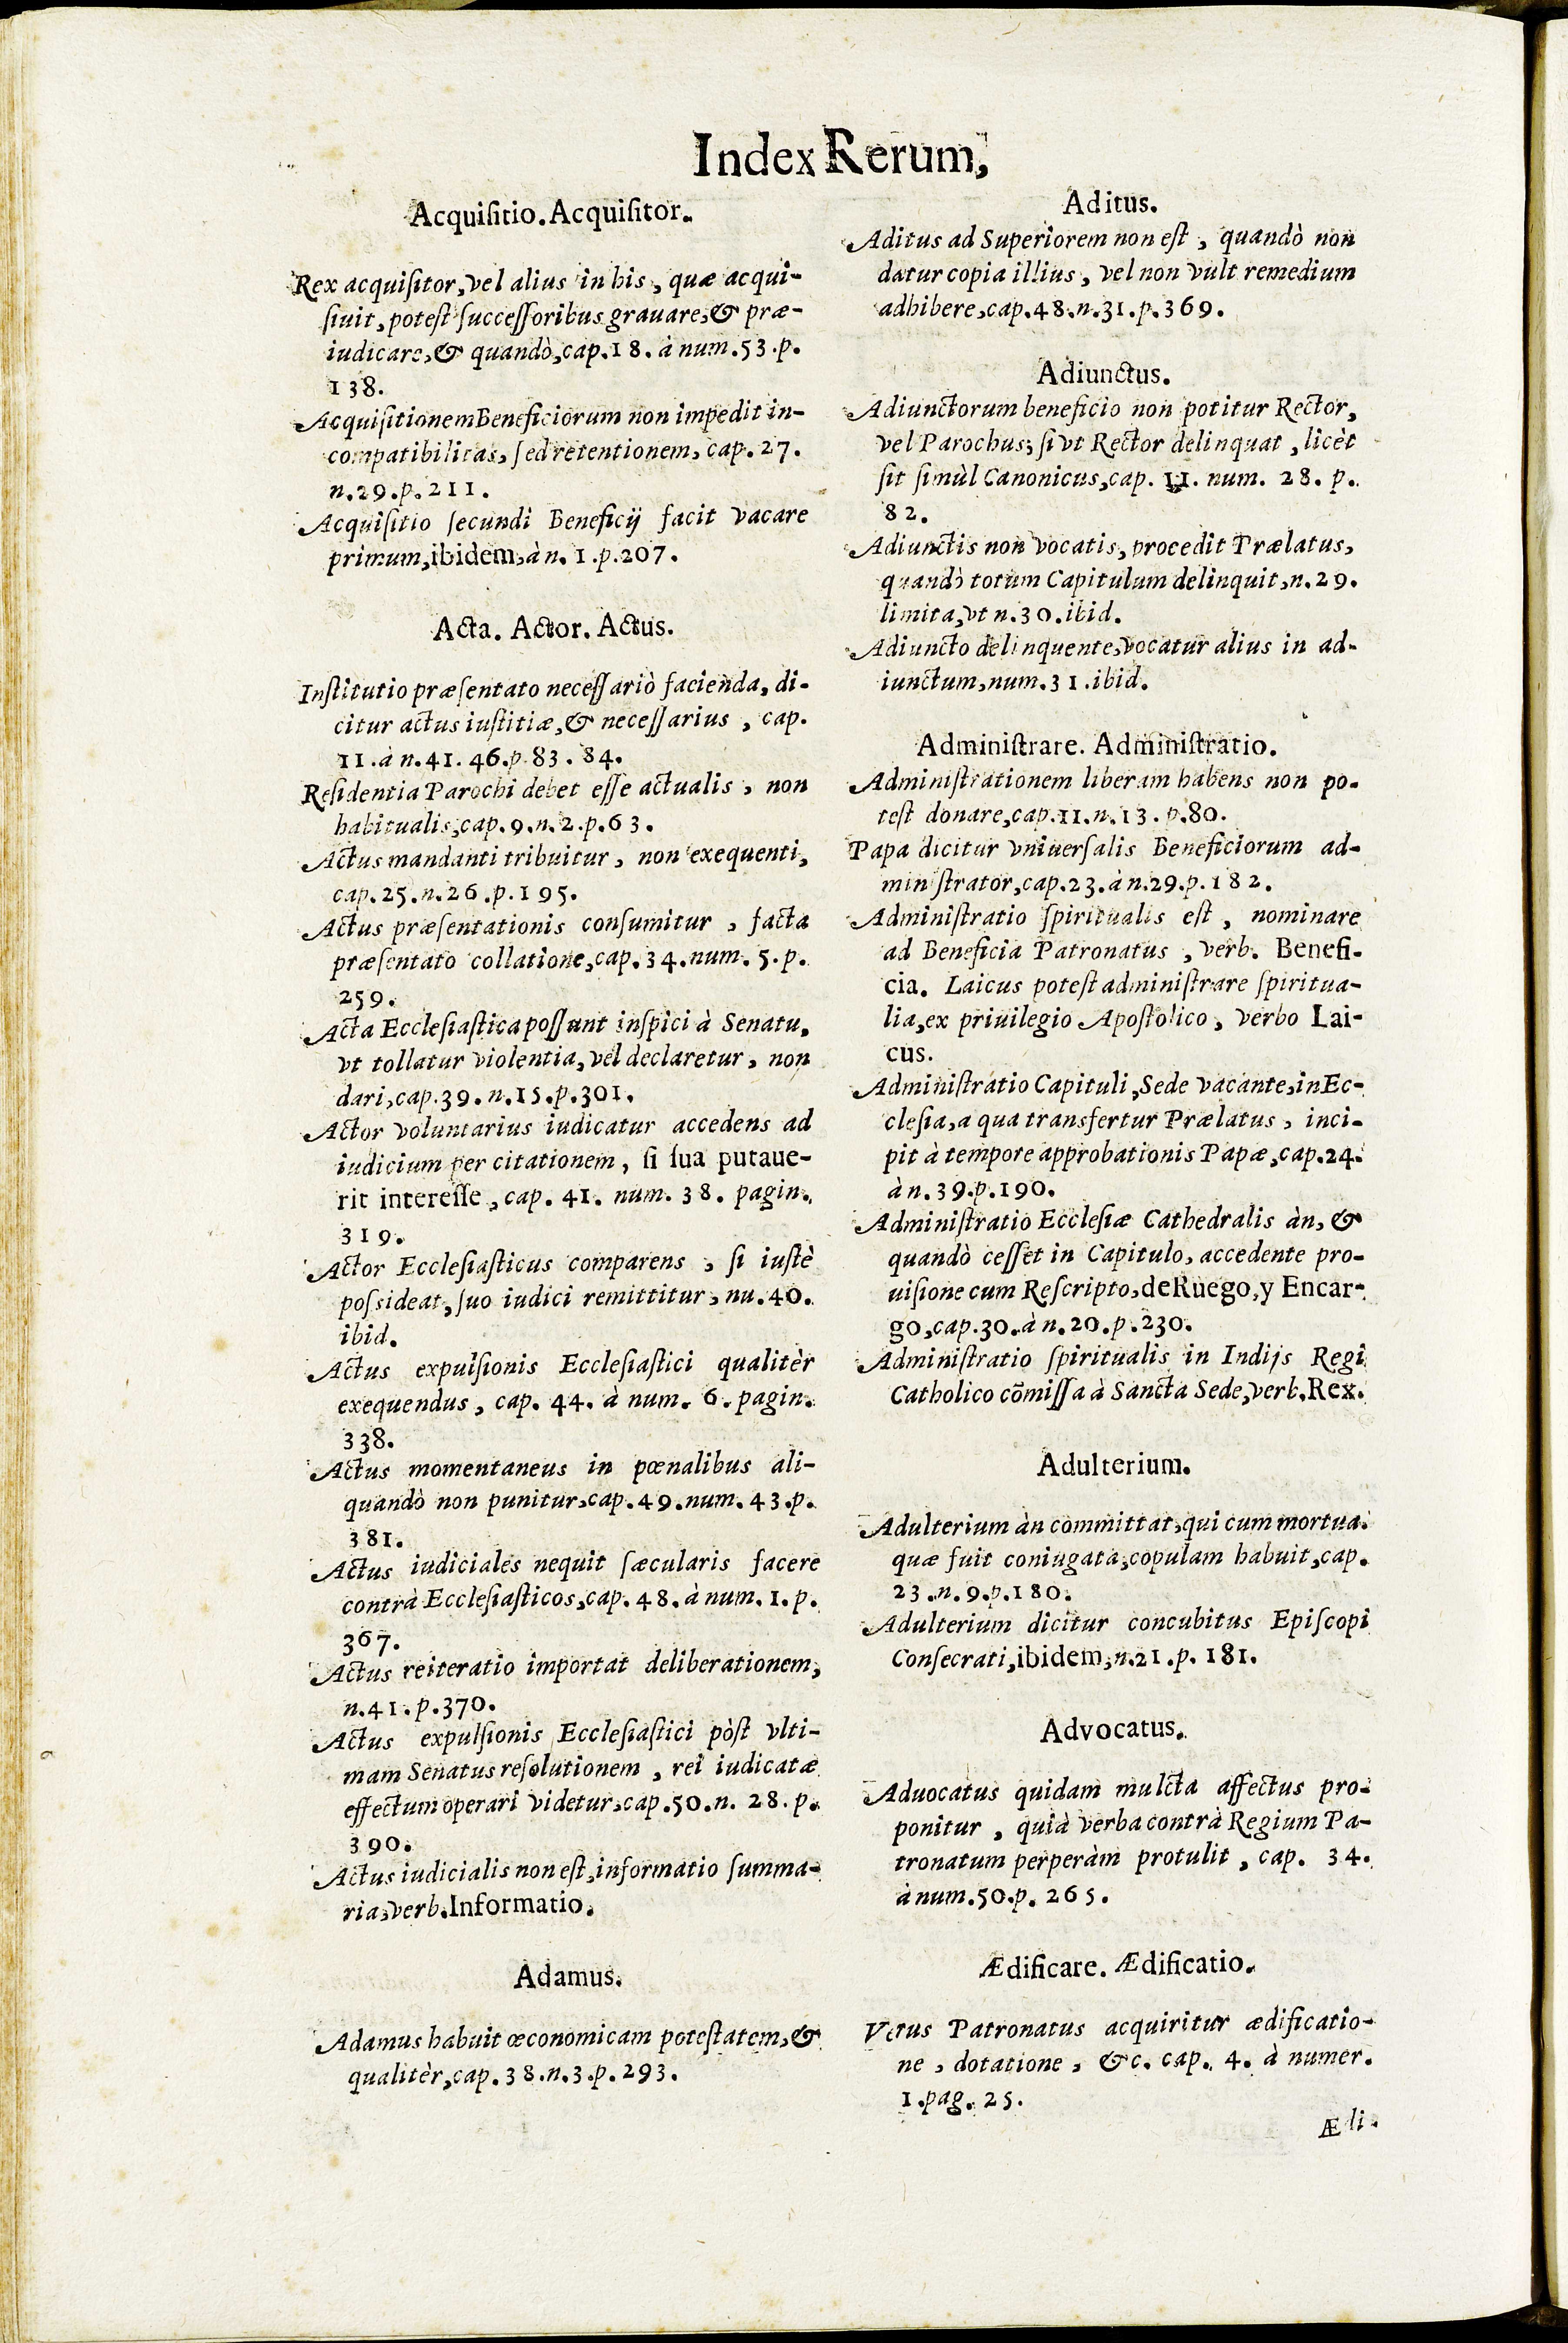 Index Rerum,
Acquiſitio. Acquiſitor.
Rex acquiſitor, vel alius in his, quæ acqui-
ſiuit, poteſt ſucceſſoribus grauare, & præ-
iudicare, & quandò, cap. 18. à num. 53. p.
138.
Acquiſitionem Beneficiorum non impedit in-
compatibilitas, ſed retentionem, cap. 27.
n. 29. p. 211.
Acquiſitio ſecundi Beneficij facit vacare
primum, ibidem, à n. 1. p. 207.
Acta. Actor. Actus.
Inſtitutio præſentato neceſſariò facienda, di-
citur actus iuſtitiæ, & neceſſarius, cap.
11. à n. 41. 46. p. 83. 84.
Reſidentia Parochi debet eſſe actualis, non
habitualis, cap. 9. n. 2. p. 63.
Actus mandanti tribuitur, non exequenti,
cap. 25. n. 26. p. 195.
Actus præſentationis conſumitur, facta
præſentato collatione, cap. 34. num. 5. p.
259.
Acta Eccleſiaſtica poſſunt inſpici à Senatu,
vt tollatur violentia, vel declaretur, non
dari, cap. 39. n. 15. p. 301.
Actor voluntarius iudicatur accedens ad
iudicium per citationem, ſi ſua putaue-
rit intereſſe, cap. 41. num. 38. pagin.
319.
Actor Eccleſiaſticus comparens, ſi iuſtè
poſsideat, ſuo iudici remittitur, nu. 40.
ibid.
Actus expulſionis Eccleſiaſtici qualitèr
exequendus, cap. 44. à num. 6. pagin.
338.
Actus momentaneus in pœnalibus ali-
quandò non punitur, cap. 49. num. 43. p.
381.
Actus iudiciales nequit ſæcularis facere
contrà Eccleſiaſticos, cap. 48. à num. 1. p.
367.
Actus reiteratio importat deliberationem,
n. 41. p. 370.
Actus expulſionis Eccleſiaſtici pòſt vlti-
mam Senatus reſolutionem, rei iudicatæ
effectum operari videtur, cap. 50. n. 28. p.
390.
Actus iudicialis non eſt, informatio ſumma-
ria, verb. Informatio.
Adamus.
Adamus habuit œconomicam poteſtatem, &
qualitèr, cap. 38. n. 3. p. 293.
Aditus.
Aditus ad Superiorem non eſt, quandò non
datur copia illius, vel non vult remedium
adhibere, cap. 48. n. 31. p. 369.
Adiunctus.
Adiunctorum beneficio non potitur Rector,
vel Parochus; ſi vt Rector delinquat, licèt
ſit ſimùl Canonicus, cap. 11. num. 28. p.
82.
Adiunctis non vocatis, procedit Prælatus,
quandò totum Capitulum delinquit, n. 29.
limita, vt n. 30. ibid.
Adiuncto delinquente, vocatur alius in ad-
iunctum, num. 31. ibid.
Adminiſtrare. Adminiſtratio.
Adminiſtrationem liberam habens non po-
teſt donare, cap. 11. n. 13. p. 80.
Papa dicitur vniuerſalis Beneficiorum ad-
miniſtrator, cap. 23. à n. 29. p. 182.
Adminiſtratio ſpiritualis eſt, nominare
ad Beneficia Patronatus, verb. Benefi-
cia. Laicus poteſt adminiſtrare ſpiritua-
lia, ex priuilegio Apoſtolico, verbo Lai-
cus.
Adminiſtratio Capituli, Sede vacante, in Ec-
cleſia, a qua transfertur Prælatus, inci-
pit à tempore approbationis Papæ, cap. 24.
à n. 39. p. 190.
Adminiſtratio Eccleſiæ Cathedralis àn, &
quandò ceſſet in Capitulo, accedente pro-
uiſione cum Reſcripto, de Ruego, y Encar-
go, cap. 30. à n. 20. p. 230.
Adminiſtratio ſpiritualis in Indijs Regi
Catholico cõmiſſa à Sancta Sede, verb. Rex.
Adulterium.
Adulterium àn committat, qui cum mortua.
quæ fuit coniugata, copulam habuit, cap.
23. n. 9. p. 180.
Adulterium dicitur concubitus Epiſcopi
Conſecrati, ibidem, n. 21. p. 181.
Advocatus.
Aduocatus quidam mulcta affectus pro-
ponitur, quià verba contrà Regium Pa-
tronatum perperàm protulit, cap. 34.
à num. 50. p. 265.
Ædificare. Ædificatio.
Verus Patronatus acquiritur ædificatio-
ne, dotatione, &c. cap. 4. à numer.
1. pag. 25.
Æ li-